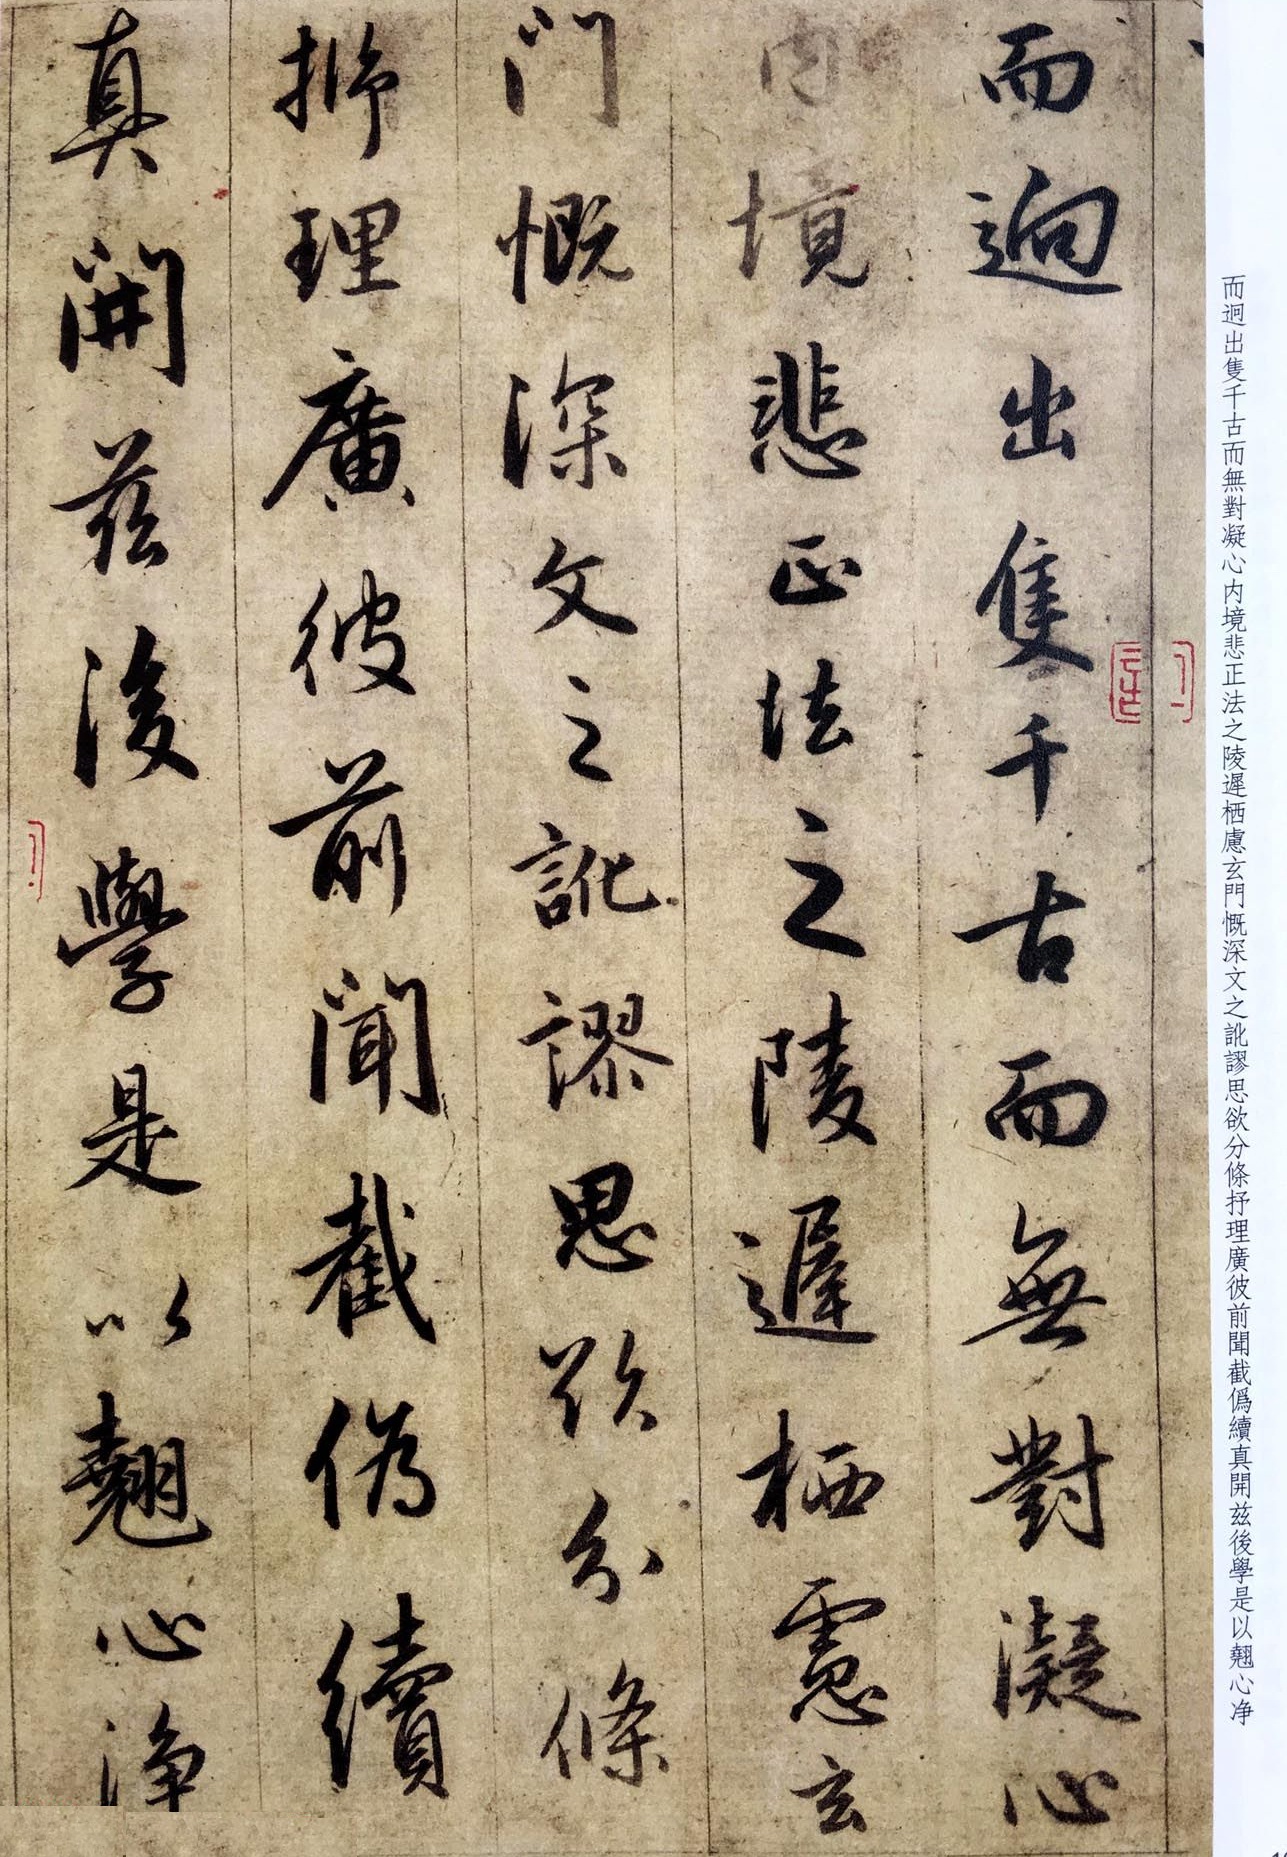 而迥出隻千古而無對凝心
内境悲正法之陵遲栖慮玄
門慨深文之訛謬思欲分條
㭊理廣彼前聞截偽續
真開茲後學是以翹心淨
而迥出隻千古而無對凝心内境悲正法之陵遲栖慮玄門慨深文之訛謬思欲分條抒理廣彼前聞截僞續真開兹後學是以翹心净